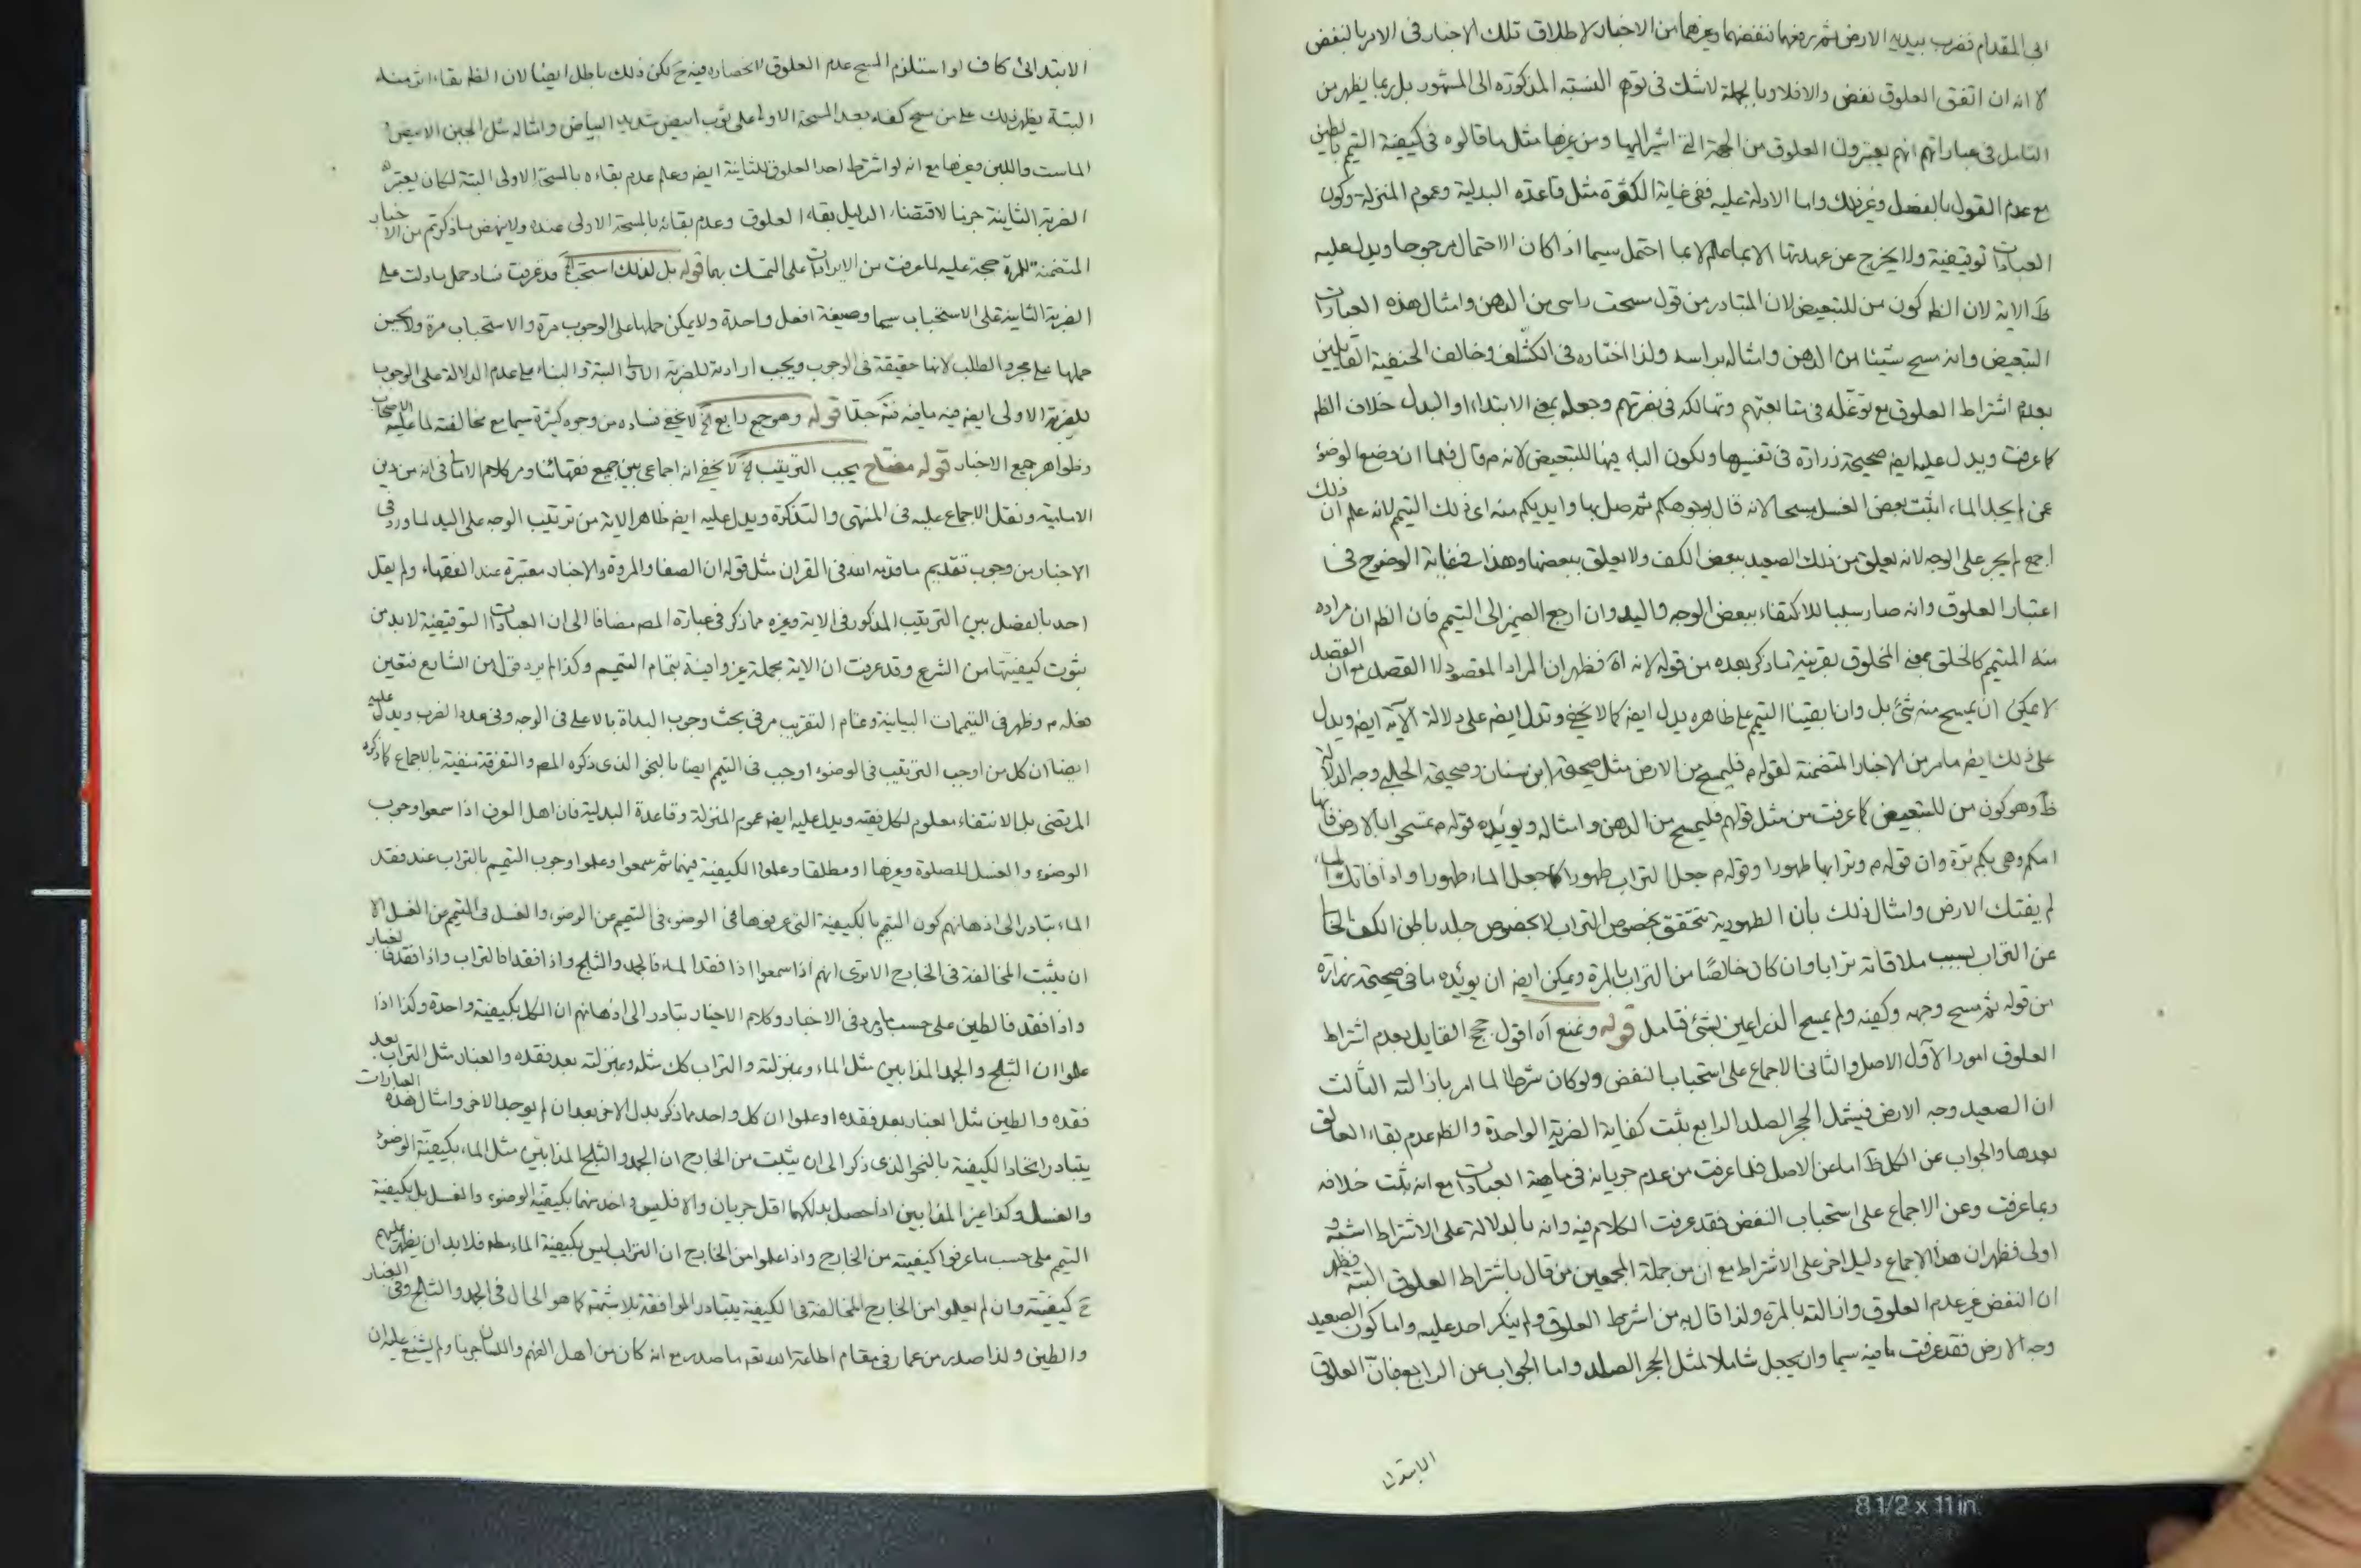 ابى المقدام فضرب بيديه الارض ثم رفعها فنفضها وغيرهما من الاخبار لاطلاق تلك الاخبار فى الامر بالنفض
لا انه ان اتفق العلوق نفض والا فلا وبالجملة لا شك فى توهم النسبة المذكورة الى المشهور بل ربما يظهر من
التامل فى عباراتهم انهم يعتبرون العلوق من الجهة التى اشير اليها ومن غيرها مثل ما قالوه فى كيفية التيمم بالطين
مع عدم القول بالفصل وغير ذلك واما الادلة عليه ففى غاية الكثرة مثل قاعدة البدلية وعموم المنزلة وكون
العبادات توقيفية ولا يخرج عن عهدتها الا بما علم لا بما احتمل سيما اذا كان الاحتمال مرجوحا ويدل عليه
ظ الاية لان الظ كون من للتبعيض لان المتبادر من قول مسحت راسى من الدهن وامثال هذه العبارات
التبعيض وانه مسح شيئا من الدهن وامثاله براسه ولذا اختاره فى الكشاف وخالف الحنفية القايلين
بعدم اشتراط العلوق مع توغله فى متابعتهم وتهالكه فى نصرتهم وجعله بمعنى الابتداء او البدل خلاف الظ
كما عرفت ويدل عليه ايض صحيحة زرارة فى تفسيرها وبكون الباء فيها للتبعيض لانه م قال فلما ان وضع الوضوء
عن لم يجد الماء اثبت بعض الغسل مسحا لانه قال بوجوهكم ثم وصل بها وايديكم منه اى ذلك التيمم لانه علم ان ذلك
اجمع لم يجر على الوجه لانه يعلق من ذلك الصعيد ببعض الكف ولا يعلق ببعضها وهذا فى غاية الوضوح فى
اعتبار العلوق وانه صار سببا للاكتفاء ببعض الوجه واليد وان ارجع الضمير الى التيمم فان الظ ان مراده
منه المتيمم كالخلق بمعنى المخلوق بقرينة ما ذكر بعده من قوله لانه اه فظهر ان المراد المقصود لا القصد مع ان القصد
لا يمكن ان يمسح منه شئ بل وان ابقينا التيمم على ظاهره يدل ايض كما لا يخفى وتدل ايض على دلالة الآية ايض ويدل
على ذلك ايض ما مر من الاخبار المتضمنة لقوله م فليمسح من الارض مثل صحيحة ابن سنان وصحيحة الحلبى وجه الدلالة
ظ وهو كون من للتبعيض كما عرفت من مثل قولهم فليمسح من الدهن وامثاله ويؤيده قوله م تمسحوا بالارض فانها
امكم وهى بكم برة وان قوله م وترابها طهورا وقوله م جعل التراب طهورا كما جعل الماء طهورا واذا فاتك الماء
لم يفتك الارض وامثال ذلك بان الطهورية تتحقق بخصوص التراب لا بخصوص جلد باطن الكف الخالى
عن التراب بسبب ملاقاته ترابا وان كان خالصا من التراب بالمرة ويمكن ايض ان يؤيده ما فى صحيحة زرارة
من قوله ثم مسح وجهه وكفيه ولم يمسح الذراعين بشئ فتامل قوله ويمنع اه اقول حجج القايل بعدم اشتراط
العلوق امور الاول الاصل والثانى الاجماع على استحباب النفض ولو كان شرطا لما امر بازالته الثالث
ان الصعيد وجه الارض فيشمل الحجر الصلد الرابع يثبت كفاية الضربة الواحدة والظ عدم بقاء العالق
بعدها والجواب عن الكل ظ اما عن الاصل فلما عرفت من عدم جريانه فى ماهية العبادات مع انه يثبت خلافه
وبما عرفت وعن الاجماع على استحباب النفض فقد عرفت الكلام فيه وانه بالدلالة على الاشتراط اشبه و
اولى فظهر ان هذا الاجماع دليل اخر على الاشتراط مع ان من جملة المجمعين من قال باشتراط العلوق البتة فظهر
ان النفض غير عدم العلوق وازالته بالمرة ولذا قال به من اشترط العلوق ولم ينكر احد عليه واما كون الصعيد
وجه الارض فقد عرفت ما فيه سيما وان يجعل شاملا لمثل الحجر الصلد واما الجواب عن الرابع فبان العلوق
الابتدائى
الابتدائى كاف او استلزم المسح عدم العلوق انحصاره فيه ح لكن ذلك باطل ايضا لان الظ بقاء اثر منه
البتة يظهر ذلك على من مسح كفه بعد المسحة الاولى على ثوب ابيض شديد البياض وامثاله مثل الجبن الابيض
الماست واللبن وغيرها مع انه لو اشترط احد العلوق للثانية ايض وعلم عدم بقاءه بالمسحة الاولى البتة لكان يعتبر
الضربة الثانية جزما لاقتضاء الدليل بقاء العلوق وعدم بقائه بالمسحة الاولى عنده ولا ينهض ما ذكرتم من الاخبار
المتضمنة للمرة حجة عليه لما عرفت من الايرادات على التمسك بها قوله بل لذلك استحب الخ قد عرفت فساد حمل ما دلت على
الضربة الثانية على الاستحباب سيما وصيغة افعل واحدة ولا يمكن حملها على الوجوب مرة والاستحباب مرة ولا يحسن
حملها على مجرد الطلب لانها حقيقة فى الوجوب ويجب ارادته للضربة الاولى البتة والبناء على عدم الدلالة على الوجوب
للضربة الاولى ايض فيه ما فيه فتد جدا قوله وهو جمع رابع الخ لا يخفى فساده من وجوه كثيرة سيما مع مخالفته لما عليه الاصحاب
وظواهر جميع الاخبار قوله مفتاح يجب الترتيب الخ لا يخفى انه اجماعى بين جميع فقهائنا ومر كلام الامالى فى انه من دين
الامامية ونقل الاجماع عليه فى المنتهى والتذكرة ويدل عليه ايض ظاهر الاية من ترتيب الوجه على اليد لما ورد فى
الاخبار من وجوب تقديم ما قدمه الله فى القران مثل قوله ان الصفا والمروة والاخبار معتبرة عند الفقهاء ولم يقل
احد بالفصل بين الترتيب المذكور فى الاية وغيره مما ذكر فى عبارة المص مضافا الى ان العبادات التوقيفية لا بد من
ثبوت كيفيتها من الشرع وقد عرفت ان الاية مجملة غير وافية بتمام التيمم وكذا لم يرد قول من الشارع فتعين
فعله م وظهر فى التيممات البيانية وتمام التقريب مر فى بحث وجوب البداة بالاعلى فى الوجه وفى عدد الضرب ويدل عليه
ايضا ان كل من اوجب الترتيب فى الوضوء اوجب فى التيمم ايضا بالنحو الذى ذكره المص والتفرقة منفية بالاجماع كما ذكره
المرتضى بل الانتفاء معلوم لكل فقيه ويدل عليه ايض عموم المنزلة وقاعدة البدلية فان اهل العرف اذا سمعوا وجوب
الوضوء والغسل للصلوة وغيرها او مطلقا وعلموا الكيفية فيهما ثم سمعوا وعلموا وجوب التيمم بالتراب عند فقد
الماء يتبادر الى اذهانهم كون التيمم بالكيفية التى عرفوها فى الوضوء فى التيمم عن الوضوء والغسل فى التيمم عن الغسل الا
ان يثبت المخالفة فى الخارج الا ترى انهم اذا سمعوا اذا فقد الماء فالجمد والثلج واذا فقدا فالتراب واذا فقد فالغبار
واذا فقد فالطين على حسب ما ورد فى الاخبار وكلام الاخيار يتبادر الى اذهانهم ان الكل بكيفية واحدة وكذا اذا
علموا ان الثلج والجمد المذابين مثل الماء وبمنزلته والتراب كك مثله وبمنزلته بعد فقده والغبار مثل التراب بعد
فقده والطين مثل الغبار بعد فقده او علموا ان كل واحد مما ذكر بدل الاخر بعد ان لم يوجد الاخر وامثال هذه العبارات
يتبادر اتحاد الكيفية بالنحو الذى ذكر الى ان يثبت من الخارج ان الجمد والثلج المذابين مثل الماء بكيفية الوضوء
والغسل وكذا غير المذابين اذا حصل بدلكهما اقل جريان والا فليس واحد منهما بكيفية الوضوء والغسل بل بكيفية
التيمم على حسب ما عرفوا كيفيته من الخارج واذا علموا من الخارج ان التراب ليس بكيفية الماء مطه فلا بد ان يظهر عليهم
ح كيفيته وان لم يعلموا من الخارج المخالفة فى الكيفية يتبادر الموافقة بلا شبهة كما هو الحال فى الجمد والثلج وفى الغبار
والطين ولذا صدر من عمار فى مقام اطاعة الله تعه ما صدر مع انه كان من اهل الفهم واللسان جزما ولم يشنع عليه ان
8 1/2 x 11 in.